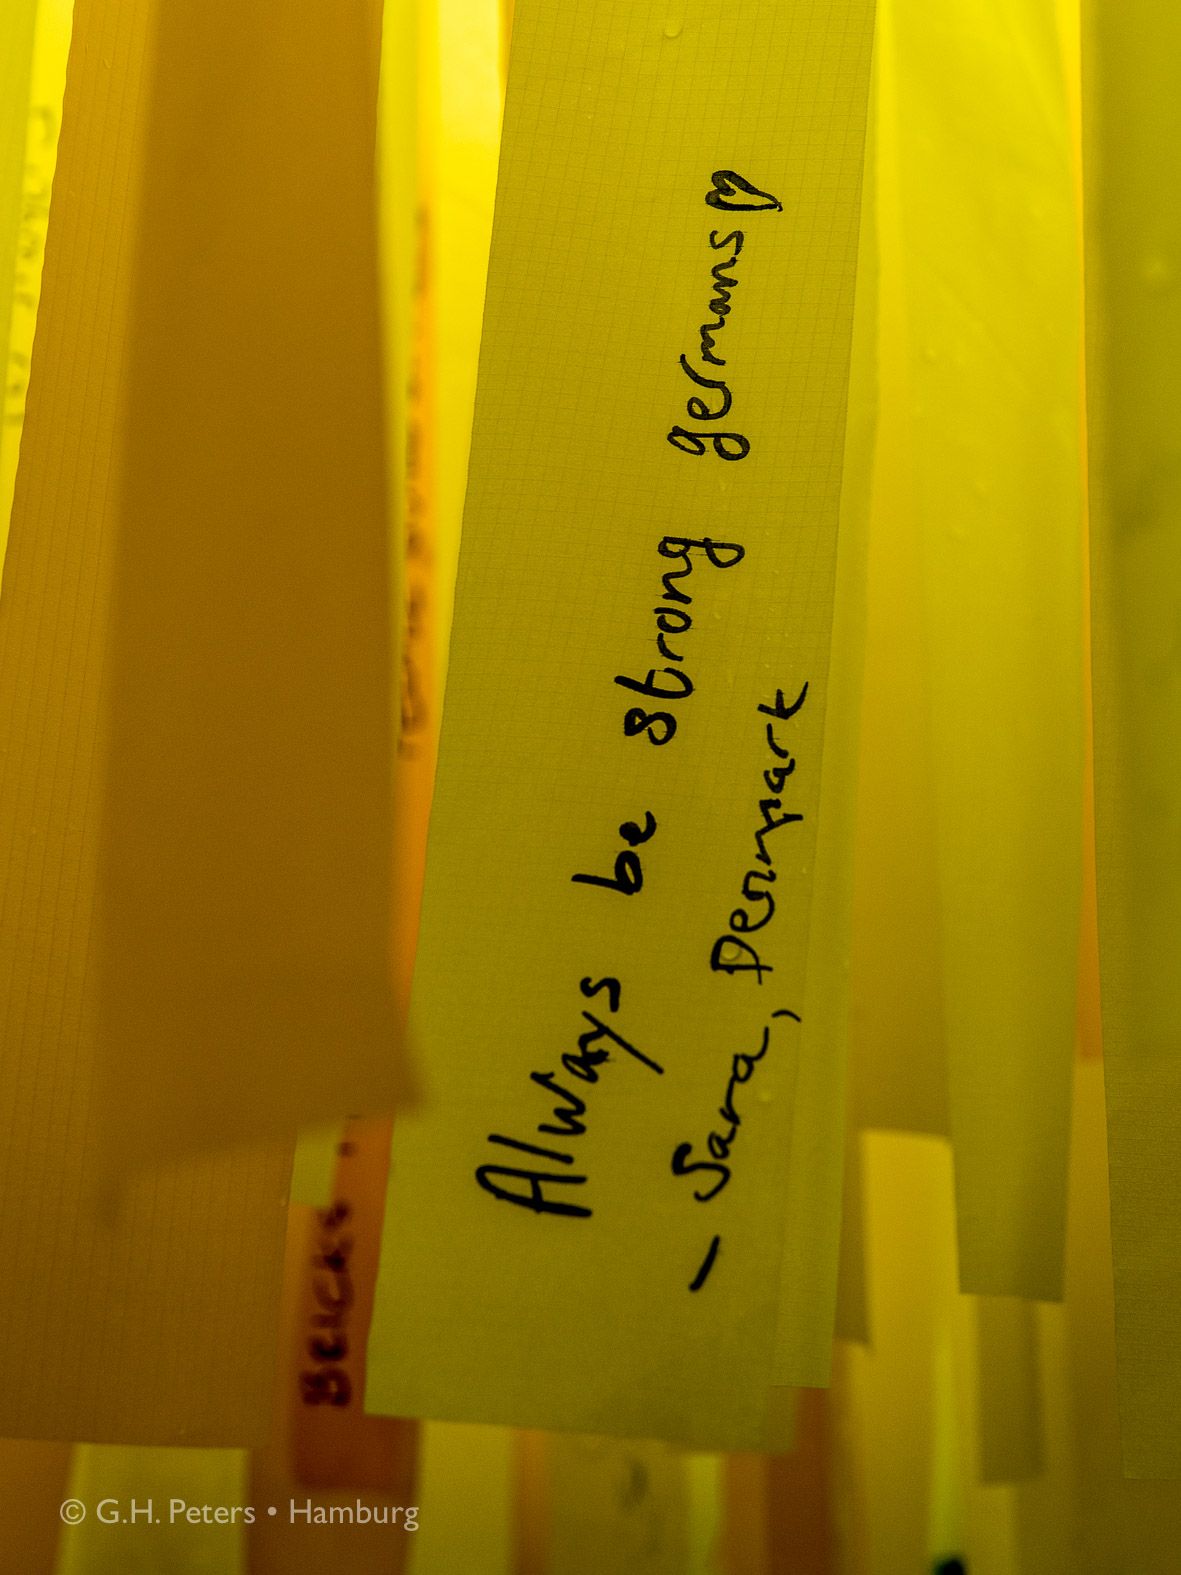 Always be strong germans ♡
– Sara, Denmark
© G.H. Peters • Hamburg